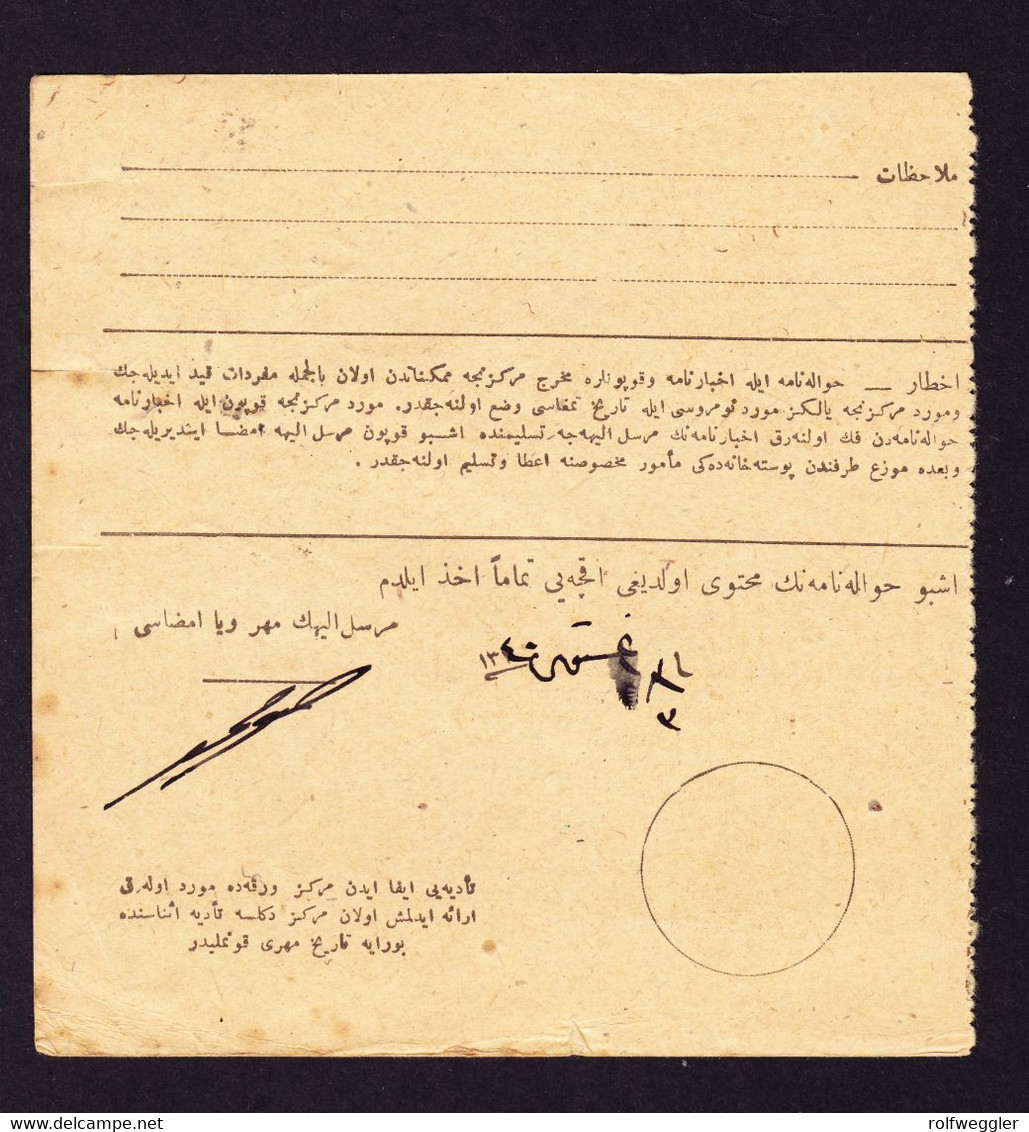 ملاحظات
اخطار — حواله‌نامه ايله اخبارنامه وقوپونلره مخرج مركزنجه ممكناتدن اولان بالجمله مفردات قيد ايديله‌جك
ومورد مركزنجه يالكز مورد نومروسى ايله تاريخ تمغاسى وضع اولنه‌جقدر. مورد مركزنجه قوپون ايله اخبارنامه
حواله‌نامه‌دن فك اولنه‌رق اخبارنامه‌نك مرسل اليهه‌جه تسليمنده اشبو قوپون مرسل اليهه امضا ايتديريله‌جك
وبعده موزع طرفندن پوسته‌خانه‌ده‌كى مأمور مخصوصنه اعطا وتسليم اولنه‌جقدر .
اشبو حواله‌نامه‌نك محتوى اولديغى اقچه‌يى تماماً اخذ ايلدم
مرسل اليهك مهر ويا امضاسى
١٣٤٠
٣
تأديه‌يى ايفا ايدن مركز ورقه‌ده مورد اوله‌رق
ارائه ايدلمش اولان مركز دكلسه تأديه اثناسنده
بورايه تاريخ مهرى قونمليدر
rolfweggler